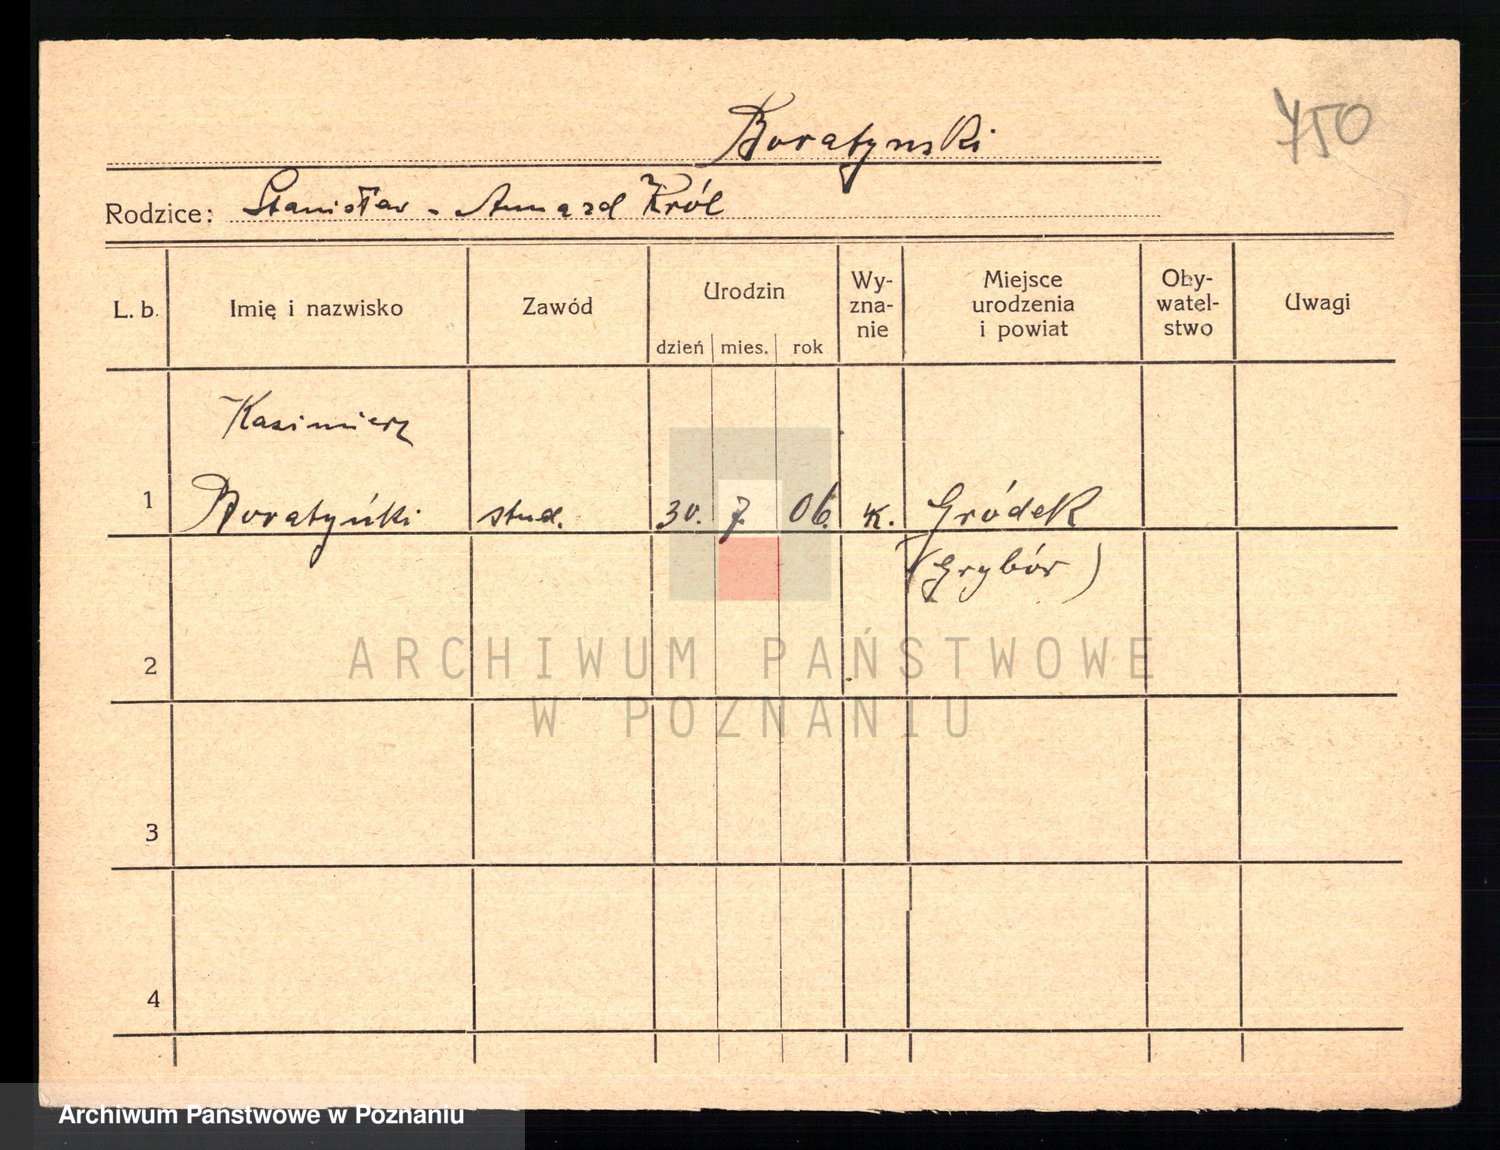 Boratynski
750
Rodzice: Stanisław - Anna zd Król
L. b. Imię i nazwisko Zawód Urodzin dzień mies. rok Wy-
zna-
nie Miejsce
urodzenia
i powiat Oby-
watel-
stwo Uwagi
Kazimierz
1 Boratyński stud. 30. 7. 06. k. Gródek
(Grybów)
2
3
4
ARCHIWUM PAŃSTWOWE
W POZNANIU
Archiwum Państwowe w Poznaniu